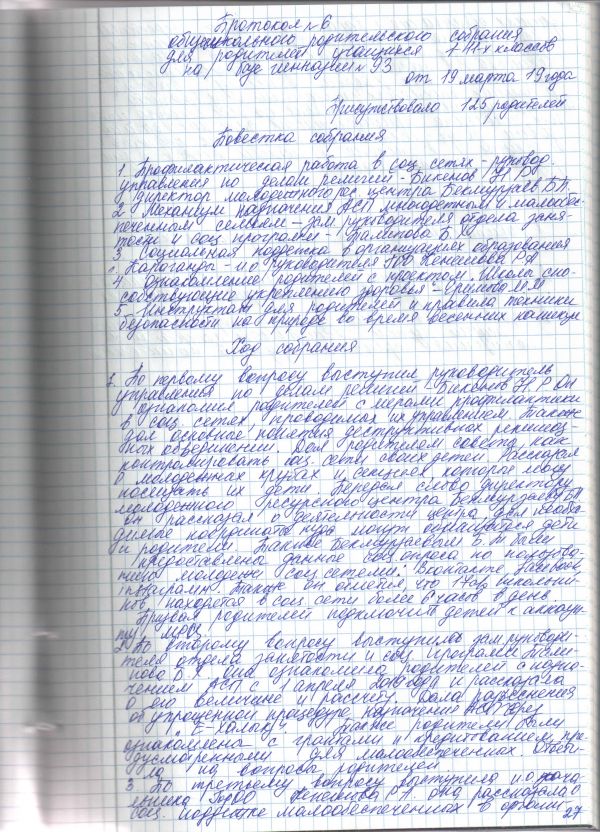 Протокол №6
общешкольного родительского собрания
для родителей учащихся 1-11-х классов
на базе гимназии №93
от 19 марта 19 года
Присутствовало 125 родителей
Повестка собрания
1. Профилактическая работа в соц. сетях - руковод.
управления по делам религий - Бикенов Н.Р.
Директор молодежного рес. центра Бекмурзаев Б.П.
2. Механизм назначения АСП многодетным и малообес-
печенным семьям - зам. руководителя отдела заня-
тости и соц. программ - Б.Х.
3. Социальная поддержка в организациях образования
г. Караганды - и.о. руководителя ГОО
4. Ознакомление родителей с проектом "Школы, спо-
собствующие укреплению здоровья -
5. Инструктаж для родителей и правила техники
безопасности на природе во время весенних каникул
Ход собрания
1. По первому вопросу выступил руководитель
управления по делам религий Бикенов Н.Р. Он
ознакомил родителей с мерами профилактики
в соц. сетях, проводимых их управлением. Также
дал основные понятия деструктивных религиоз-
ных объединений. Дал родителям советы, как
контролировать соц. сети своих детей. Рассказал
о молодежных кружках и секциях, которые могут
посещать их дети. Передал слово директору
молодежного ресурсного центра Бекмурзаеву Б.П.
Он рассказал о деятельности центра, дал необхо-
димые координаты, куда могут обращаться дети
и родители. Также Бекмурзаевым Б.П. были
предоставлены данные соц. опроса по пользова-
нию молодежи соц. сетями: Вконтакте, Facebook,
инстаграмм. Также он отметил, что
находятся в соц. сети более 6 часов в день.
Призвал родителей подключить детей к аккаун-
ту МРЦ.
2. По второму вопросу выступила зам. руководи-
теля отдела занятости и соц. программ
Б.Х. Она ознакомила родителей с назна-
чением АСП с 1 апреля 2019 года и рассказала
о его величине и расчету. Дала разъяснения
об упрощенной процедуре назначения АСП через
"Е-Халық". Также родители были
ознакомлены с грантами и кредитованием, пре-
дусмотренному для малообеспеченных. Ответи-
ла на вопросы родителей.
3. По третьему вопросу выступила и.о. нача-
льника ГорОО она рассказала о
соц. поддержке малообеспеченных в органи-
27